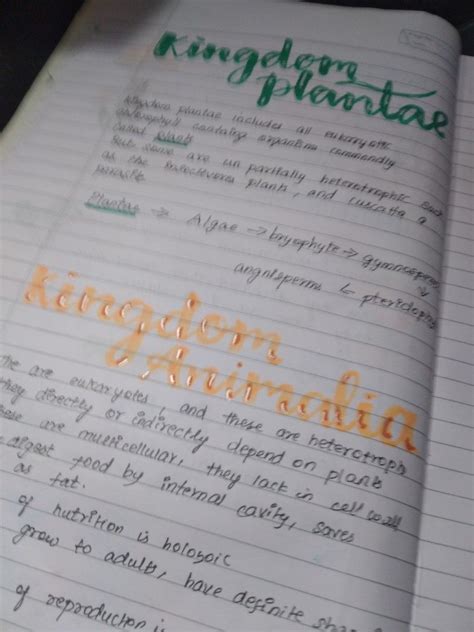 Kingdom
plantae
Kingdom plantae includes all eukaryotic
chlorophyll containing organism commonly
called plants
But some are un paritally heterotrophic such
as the Insectivorous plants, and cuscatta a
parasite
Plantae → Algae → bryophyte → gymnosperms
angnisperms ← pteridophytes
Kingdom
Animalia
are eukaryotes, and these are heterotroph
they directly or indirectly depend on plants
are multicellular, they lack in cell wall
digest food by internal cavity, saves
as fat.
of nutrition is holozoic
grow to adults, have definite shape
of reproduction is